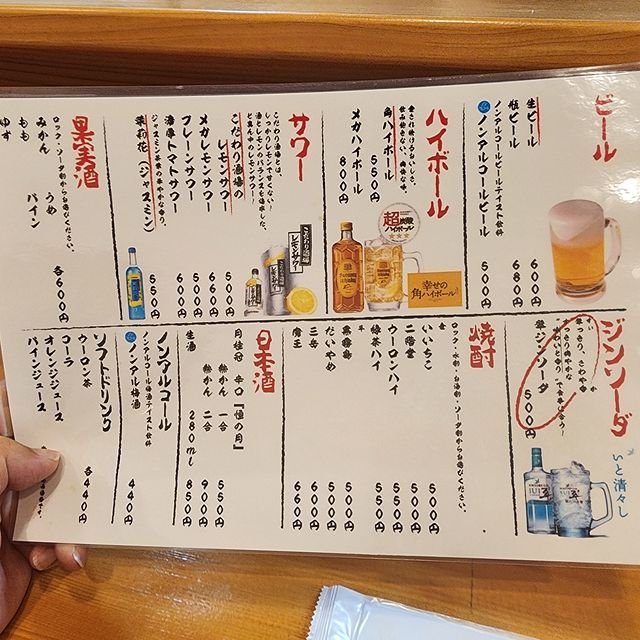 ビール
生ビール 600円
瓶ビール 680円
ノンアルコールビールテイスト飲料
ノンアルコールビール 500円
ハイボール
愛され続けるおいしさ。
飲み飽きない、爽快な味。
角ハイボール 550円
メガハイボール 800円
超炭酸
ハイボール
幸せの
角ハイボール
サワー
こだわり酒場とは、
しっかりレモンで甘くない!
酒とレモンのバランスを追求した、
こだわり酒場の
レモンサワー 500円
メガレモンサワー 660円
プレーンサワー 500円
濃厚トマトサワー 600円
ジャスミン茶葉の華やかな香り。
茉莉花(ジャスミン) 500円
こだわり酒場の
レモンサワー
果実酒
ロック・ソーダ割からお選びください。
みかん うめ
もも パイン
ゆず
各600円
ジンソーダ
翠ジンソーダ 500円
いと清々し
翠
焼酎
ロック・水割・お湯割・ソーダ割からお選びください。
いいちこ 550円
二階堂 550円
ウーロンハイ 500円
緑茶ハイ 550円
黒霧島 550円
だいやめ 600円
三岳 600円
魔王 660円
日本酒
月桂冠 辛口『恒の月』
熱かん 一合 550円
熱かん 二合 900円
生酒 280ml 850円
ノンアルコール
ノンアルコール梅酒テイスト飲料
ノンアル梅酒 440円
ソフトドリンク
ウーロン茶
コーラ
オレンジジュース
パインジュース
各440円